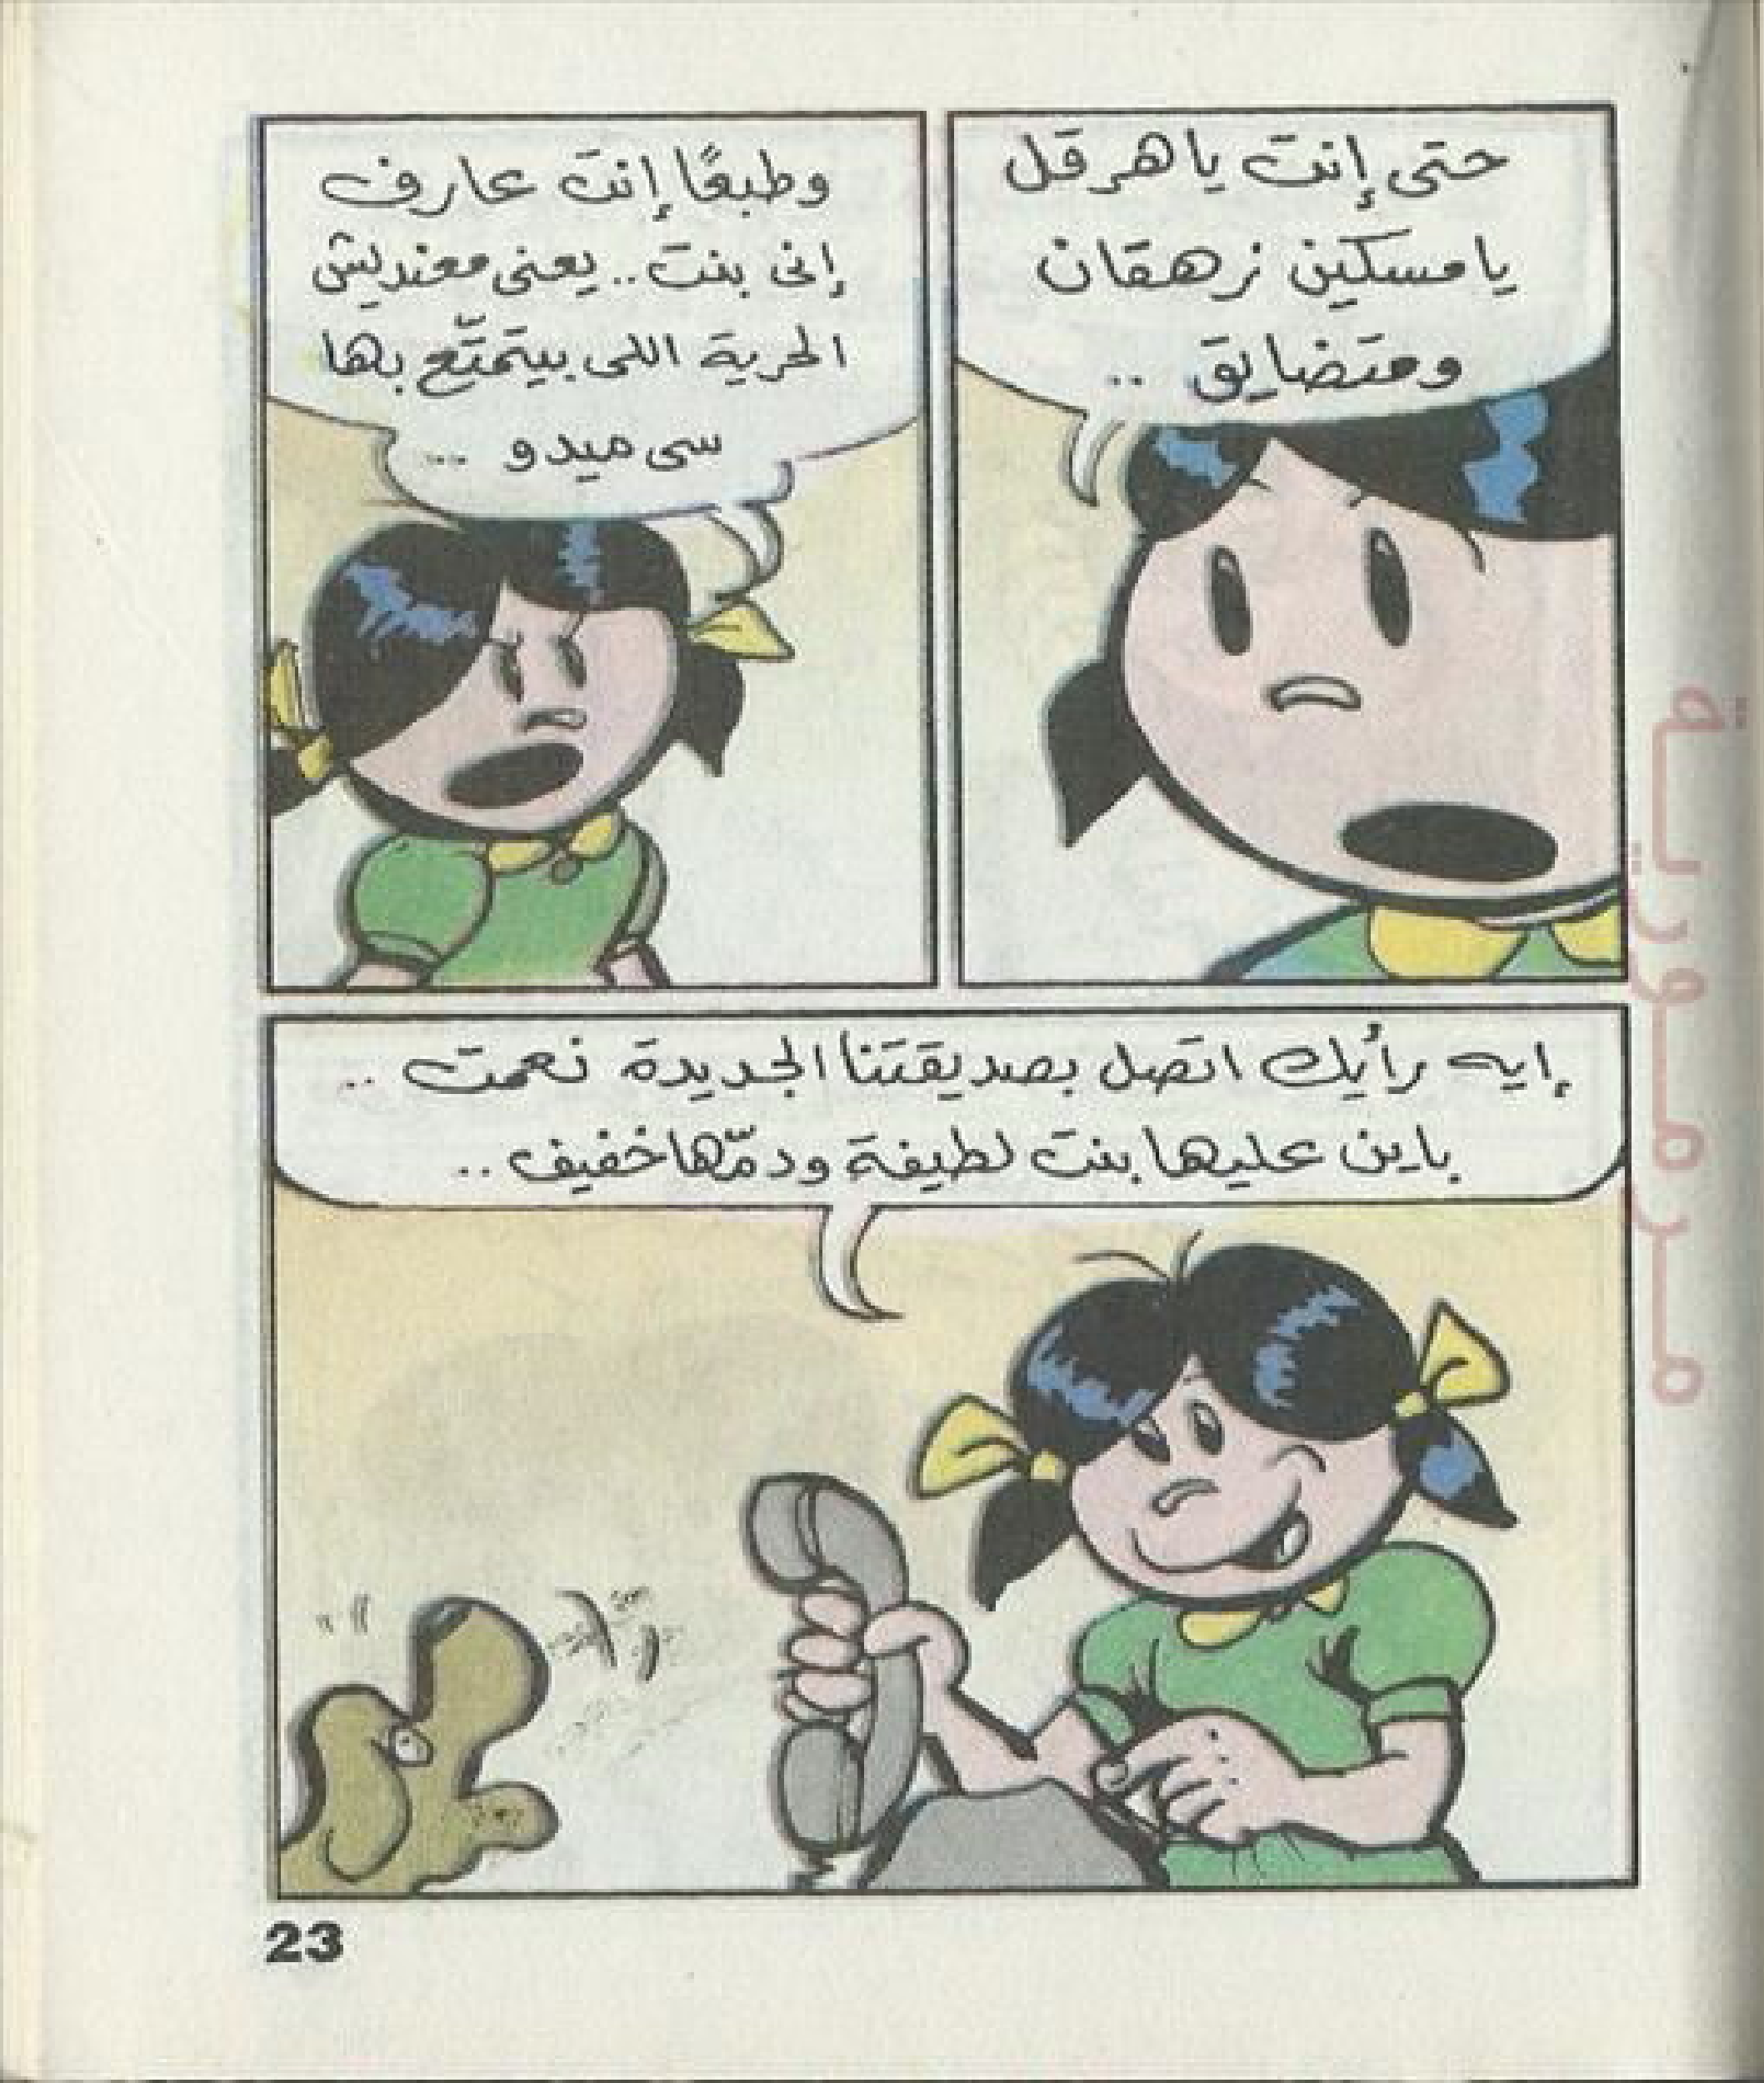 حتى إنت ياهرقل
يا مسكين زهقان
ومتضايق ..
وطبعًا إنت عارف
إنى بنت .. يعنى معنديش
الحرية اللى بيتمتّع بها
سى ميدو ...
إيه رأيك اتصل بصديقتنا الجديدة نعمت ..
باين عليها بنت لطيفة ودمّها خفيف ..
23
مرمورية